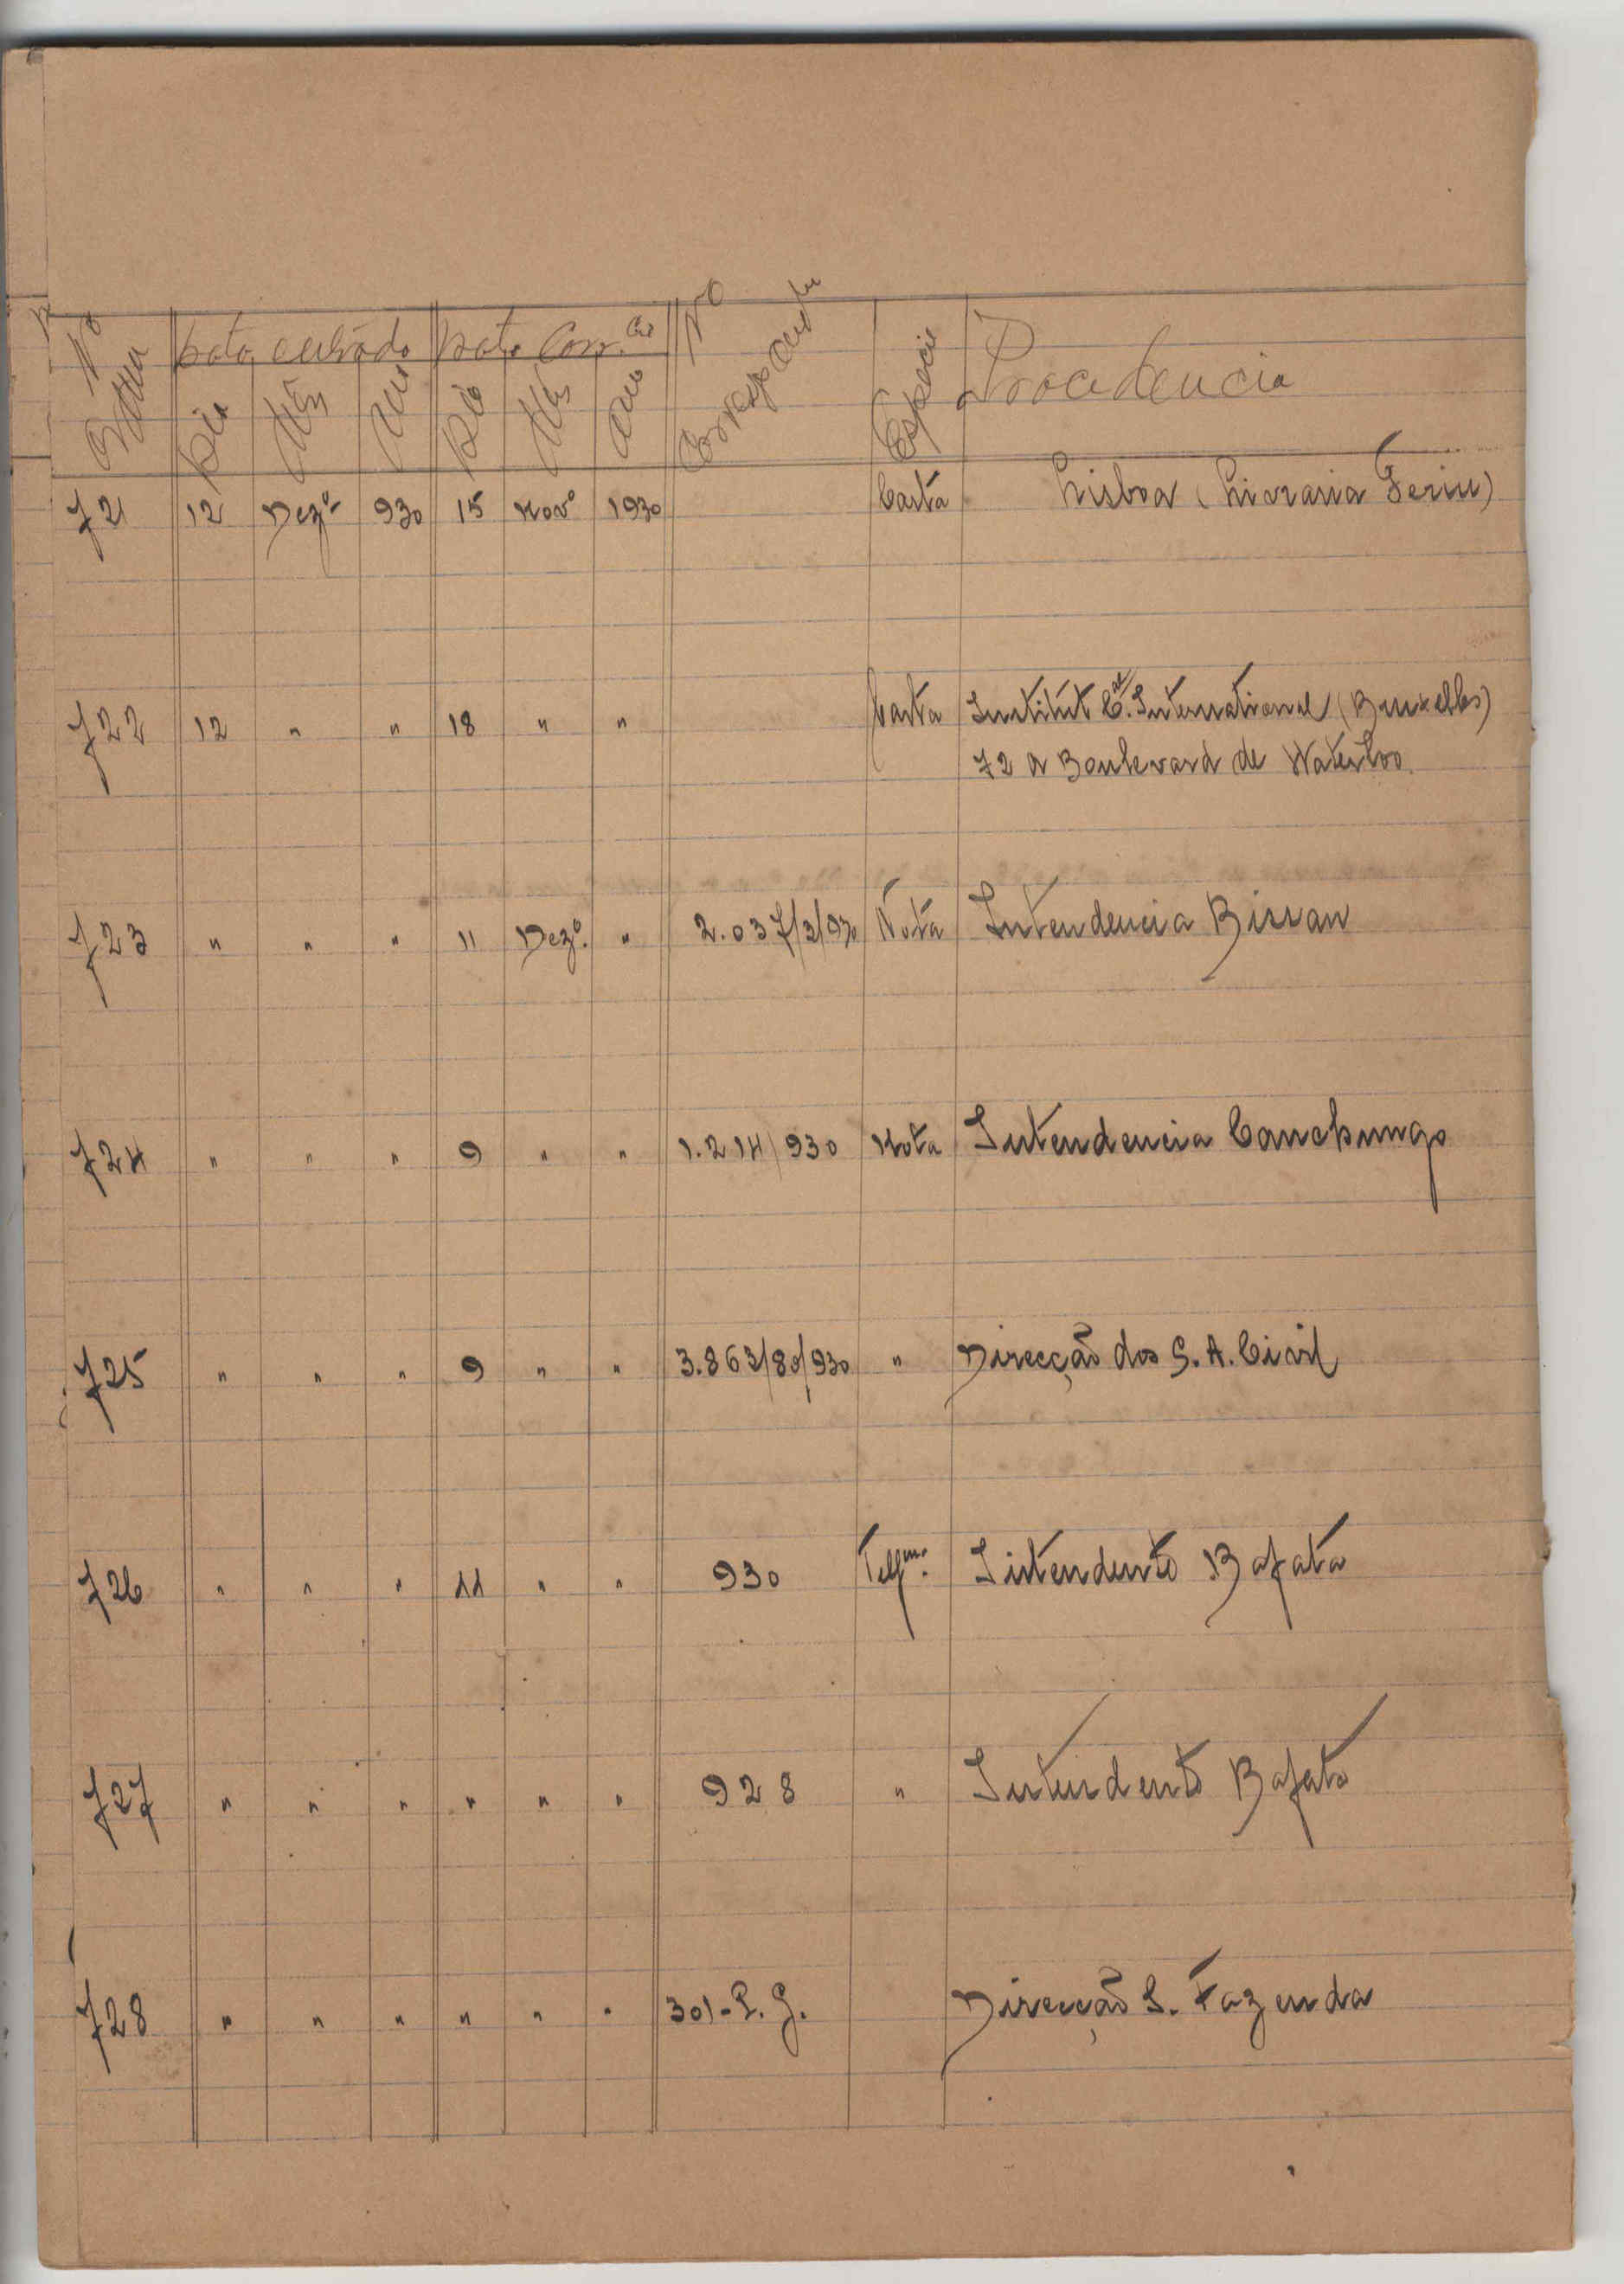 Nº Ordem Data entrada Data Corr.cia Nº Correspondente Especie Procedencia
Dia Mês Ano Dia Mês Ano
721 12 Dezº 930 15 Novº 1930 Carta Lisboa (Livraria Ferin)
722 12 " " 18 " " Carta Institut C.al International (Bruxelles)
72 A Boulevard de Waterloo
723 " " " 11 Dezº. " 2.037/3/930 Nota Intendencia Bissau
724 " " " 9 " " 1.214/930 Nota Intendencia Canchungo
725 " " " 9 " " 3.863/80/930 " Direcção dos S. A. Civil
726 " " " 11 " " 930 Telgma. Intendente Bafatá
727 " " " " " " 928 " Intendente Bafatá
728 " " " " " " 301-P. G. Direcção S. Fazenda